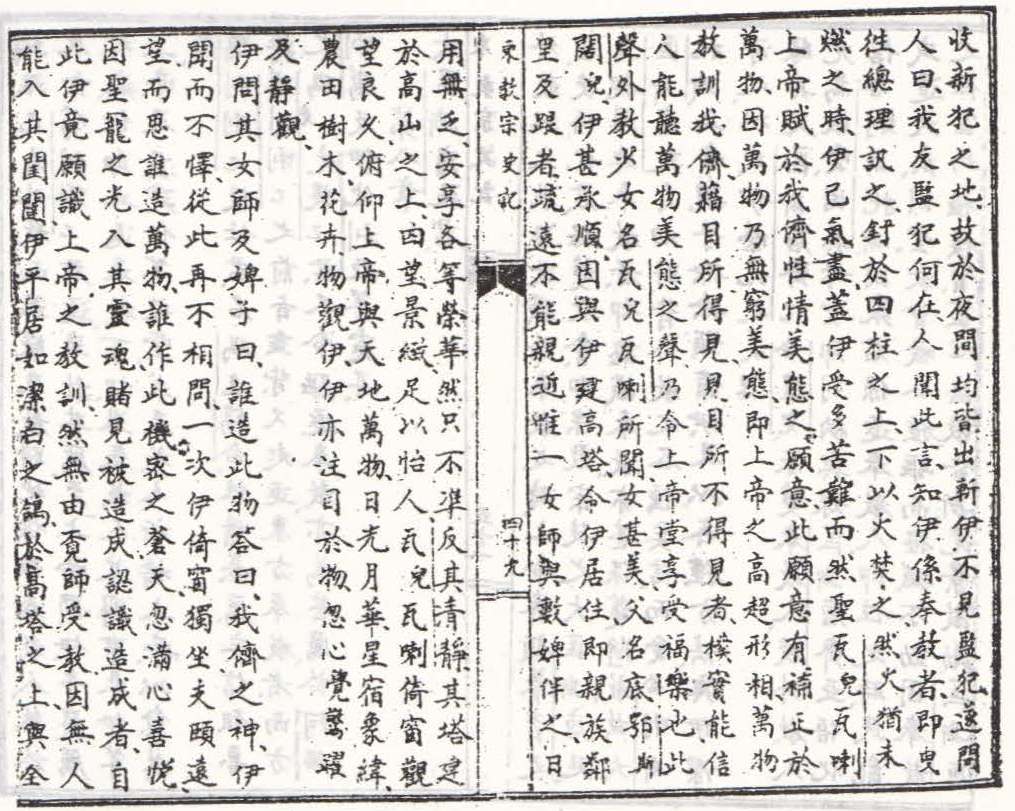 收新犯之地、故於夜間均皆出斬、伊不見監犯、遂問
人曰、我友監犯何在、人聞此言、知伊係奉教者、即曳
徃總理訊之、釘於四柱之上、下以火焚之、然火猶未
燃之時、伊已氣盡、蓋伊受多苦難而然、聖瓦兒瓦喇
上帝賦於我儕性情美態之願意、此願意有補正於
萬物、因萬物乃無窮美態、即上帝之高超形相、萬物
教訓我儕、藉目所得見、見目所不得見者、樸實能信
人能聽萬物美態之聲、乃令上帝堂享受福樂也、此
聲外教少女名瓦兒瓦喇所聞、女甚美、父名底鄂斯
闊兒、伊甚承順、因與伊建高塔、令伊居住、即親族鄰
里及跟者、疏遠不能親近、惟一女師與數婢伴之、日
東教宗史記
四十九
用無乏、安享各等榮華、然只不凖反其清靜、其塔建
於高山之上、由望景緻、足以怡人、瓦兒瓦喇倚窗觀
望良久、俯仰上帝、與天地萬物、日光月華、星宿象緯
農田樹木花卉、物觀伊、伊亦注目於物、忽心覺驚躍
及靜觀、
伊問其女師及婢子曰、誰造此物、答曰、我儕之神、伊
聞而不懌、從此再不相問、一次伊倚窗獨坐、夫頤遠
望而思、誰造萬物、誰作此機密之蒼天、忽滿心喜悅、
因聖寵之光入其靈魂、賭見被造成、認識造成者、自
此伊竟願識上帝之教訓、然無由覓師受教、因無人
能入其閨闥、伊平居如潔白之鴿、於高塔之上、與全